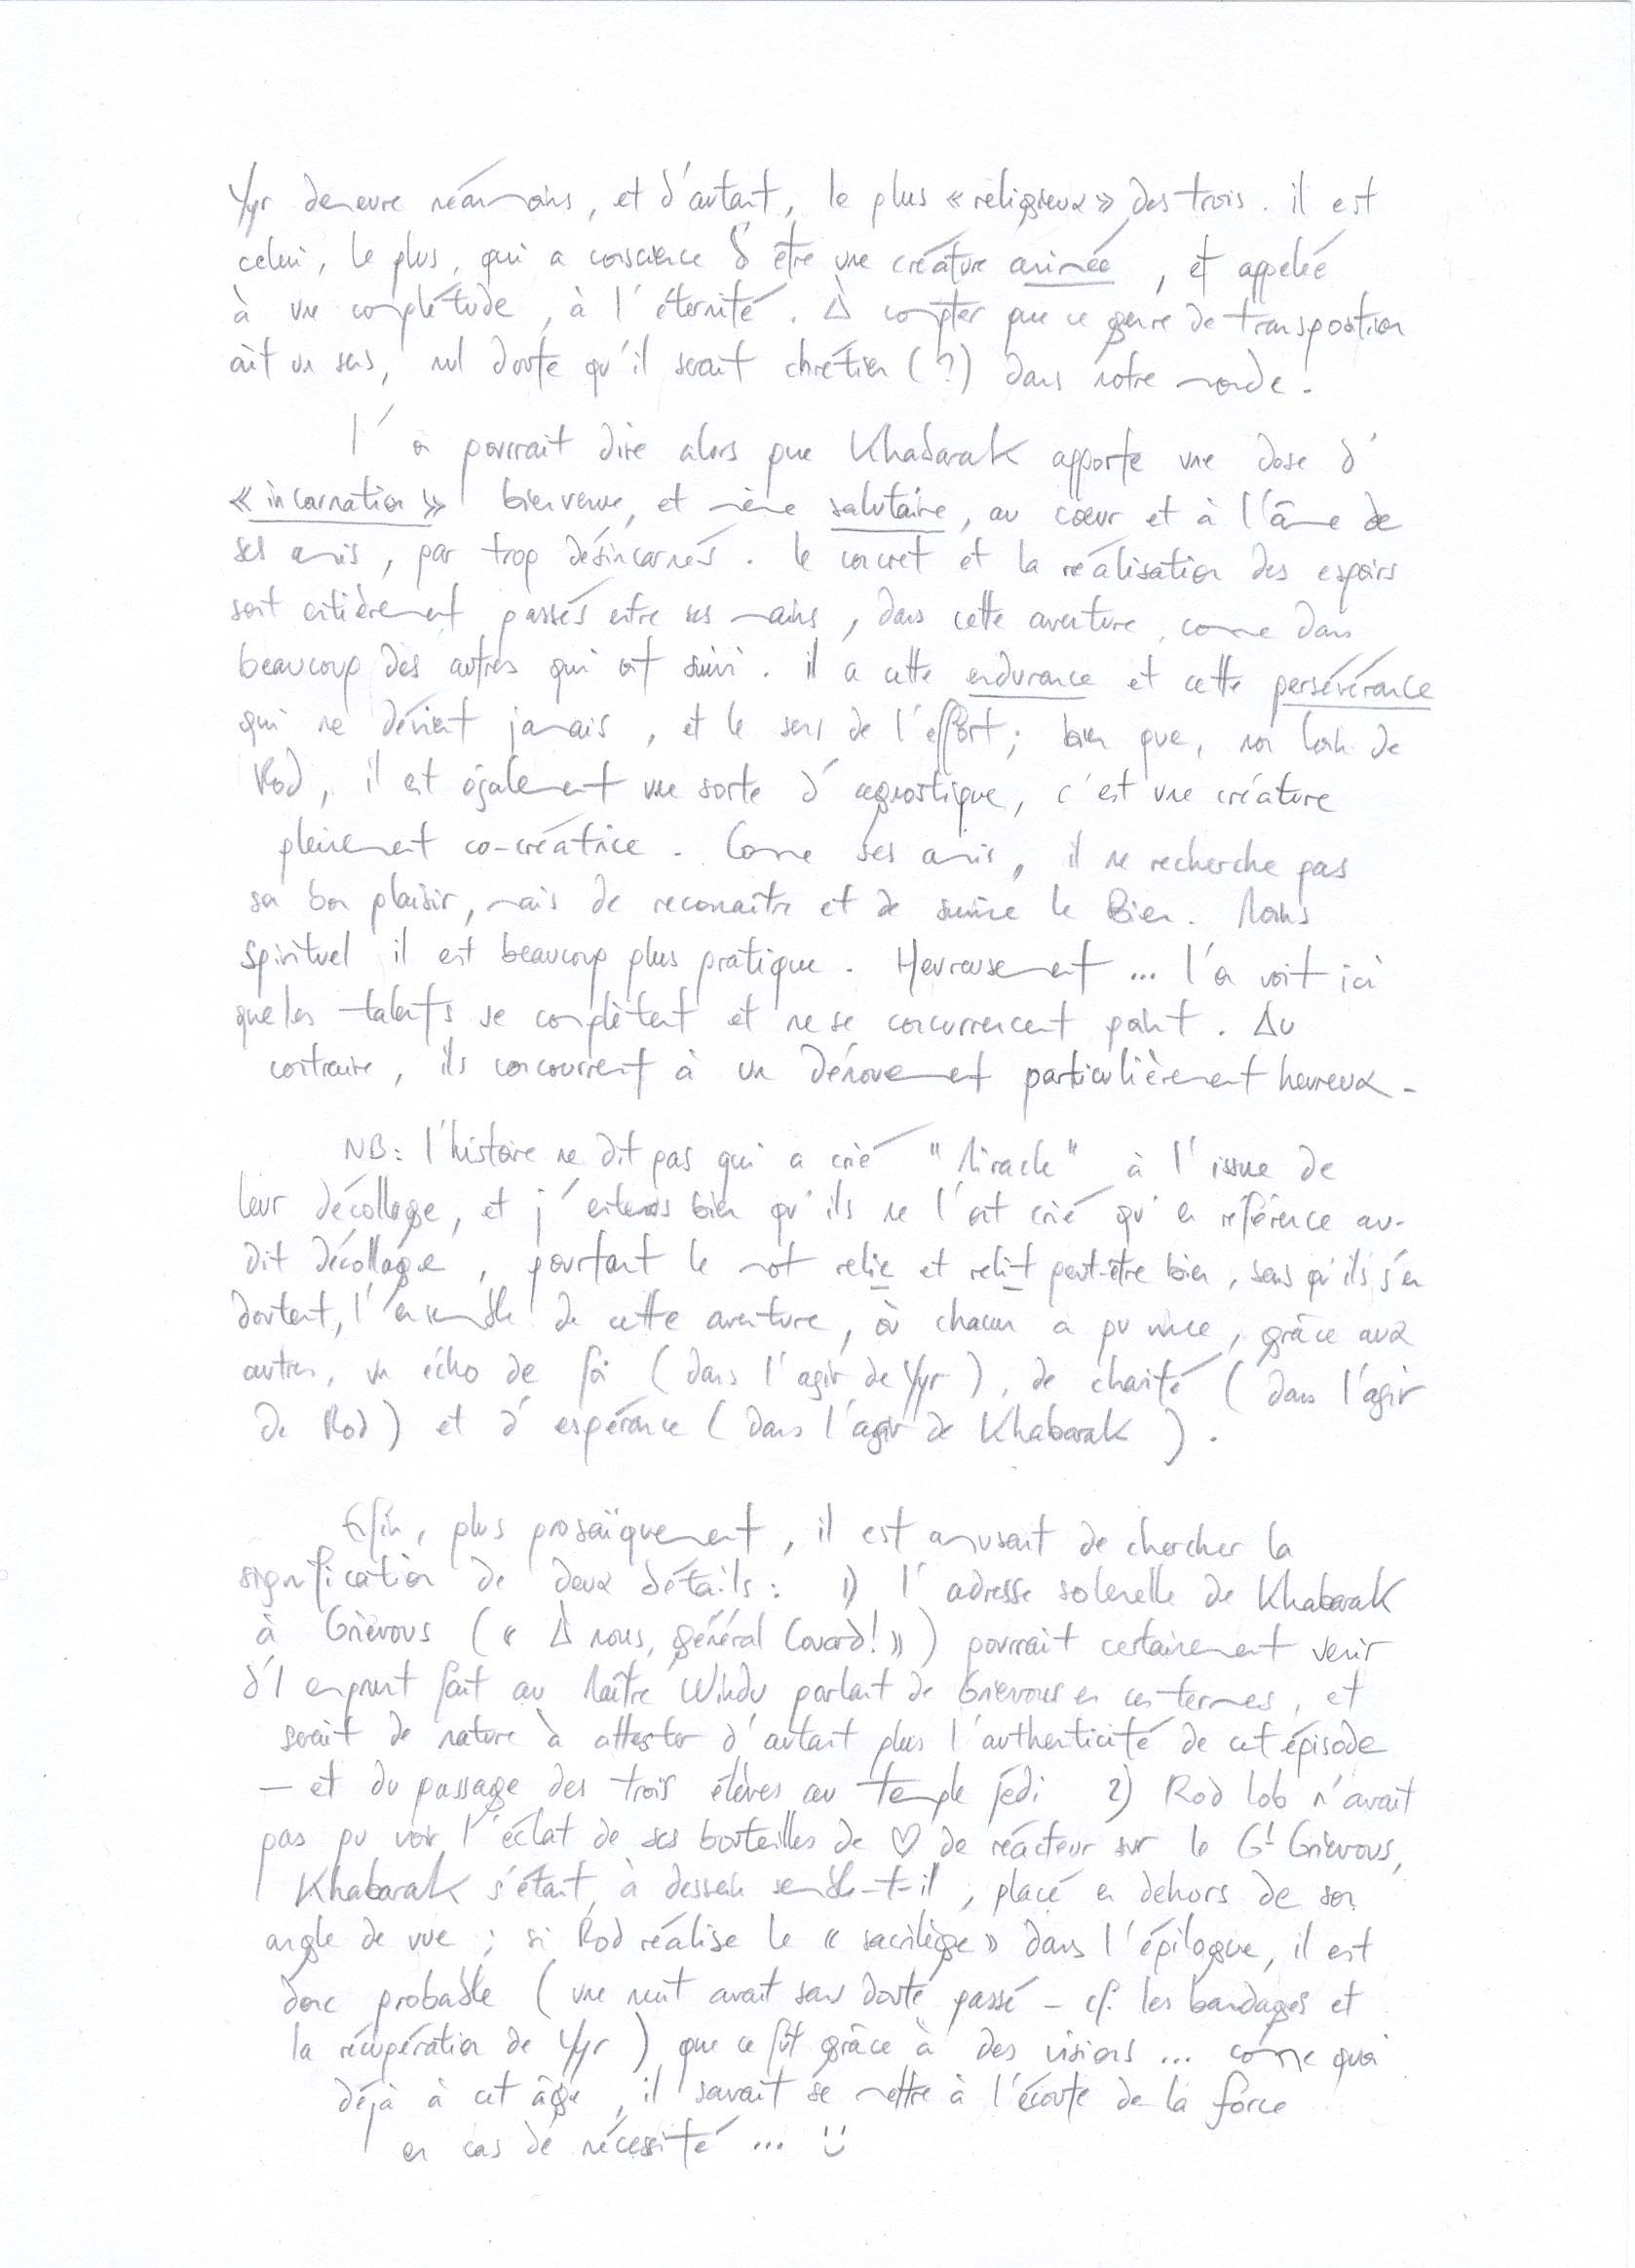 Yyr demeure néanmoins, et d'autant, le plus « religieux » des trois. il est
celui, le plus, qui a conscience d'être une créature animée, et appelée
à une complétude, à l'éternité. À compter que ce genre de transposition
ait un sens, nul doute qu'il serait chrétien (?) dans notre monde.
l'on pourrait dire alors que Khabarak apporte une dose d'
« incarnation » bienvenue, et même salutaire, au cœur et à l'âme de
ses amis, par trop désincarnés. le concret et la réalisation des espoirs
sont entièrement passés entre ses mains, dans cette aventure, comme dans
beaucoup des autres qui ont suivi. il a cette endurance et cette persévérance
qui ne dévient jamais, et le sens de l'effort; bien que, non loin de
Rod, il est également une sorte d'agnostique, c'est une créature
pleinement co-créatrice. Comme ses amis, il ne recherche pas
son bon plaisir, mais de reconnaître et de suivre le Bien. Moins
spirituel il est beaucoup plus pratique. Heureusement... l'on voit ici
que les talents se complètent et ne se concurrencent point. Au
contraire, ils concourrent à un dénouement particulièrement heureux.
NB: l'histoire ne dit pas qui a crié "Miracle" à l'issue de
leur décollage, et j'entends bien qu'ils ne l'ont crié qu'en référence au-
dit décollage, pourtant le mot relie et relit peut-être bien, sans qu'ils s'en
doutent, l'ensemble de cette aventure, où chacun a pu vivre, grâce aux
autres, un écho de foi (dans l'agir de Yyr), de charité (dans l'agir
de Rod) et d'espérance (dans l'agir de Khabarak).
Enfin, plus prosaïquement, il est amusant de chercher la
signification de deux détails: 1) l'adresse solennelle de Khabarak
à Grievous (« À nous, général Couard! ») pourrait certainement venir
d'1 emprunt fait au Maître Windu parlant de Grievous en ces termes, et
serait de nature à attester d'autant plus l'authenticité de cet épisode
— et du passage des trois élèves au temple jedi 2) Rod lob n'avait
pas pu voir l'éclat de ses bouteilles de ♡ de réacteur sur le Gal Grievous,
Khabarak s'étant, à dessein semble-t-il, placé en dehors de son
angle de vue; si Rod réalise le « sacrilège » dans l'épilogue, il est
donc probable (une nuit avait sans doute passé — cf. les bandages et
la récupération de Yyr) que ce fût grâce à des visions... comme quoi
déjà à cet âge, il savait se mettre à l'écoute de la force
en cas de nécessité... :)